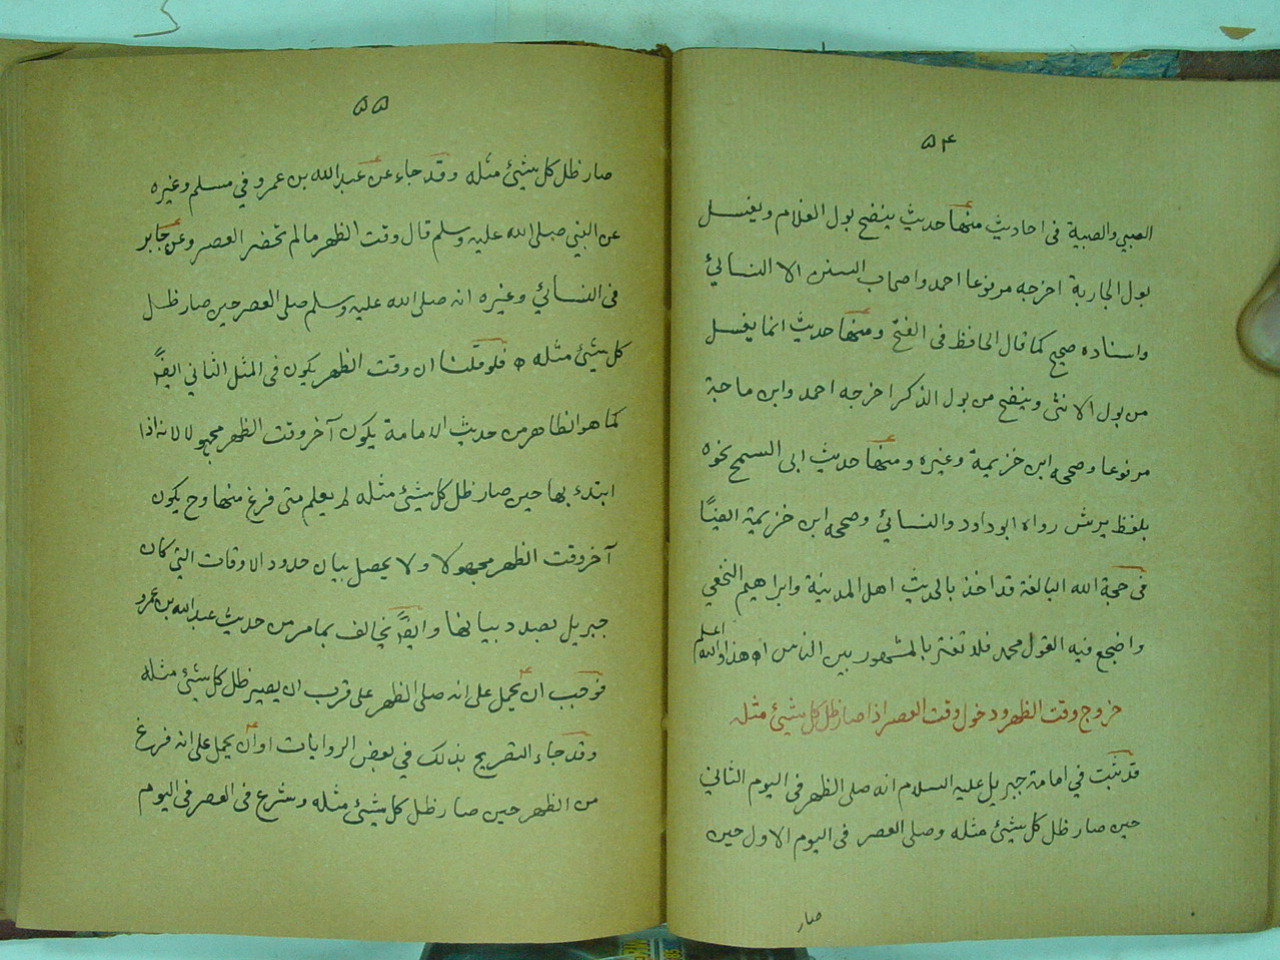 ۵۴
الصبي والصبية فى احاديث منها حديث ينضح بول الغلام ويغسل
بول الجارية اخرجه مرفوعا احمد واصحاب السنن الا النسائي
واسناده صحيح كما قال الحافظ فى الفتح ومنها حديث انما يغسل
من بول الانثى وينضح من بول الذكر اخرجه احمد وابن ماجة
مرفوعا وصححه ابن خزيمة وغيره ومنها حديث ابى السمح نحوه
بلفظ يرش رواه ابو داود والنسائي وصححه ابن خزيمة ايضًا
فى حجة الله البالغة قد اخذ بالحديث اهل المدينة وابراهيم النخعي
واضجع فيه القول محمد فلا تغتر بالمشهور بين الناس اه هذا والله اعلم
خروج وقت الظهر ودخول وقت العصر اذا صار ظل كل شيئ مثله
قد ثبت في امامة جبريل عليه السلام انه صلى الظهر فى اليوم الثانى
حين صار ظل كل شيئ مثله وصلى العصر فى اليوم الاول حين
صار
۵۵
صار ظل كل شيئ مثله وقد جاء عن عبد الله بن عمرو في مسلم وغيره
عن النبي صلى الله عليه وسلم قال وقت الظهر ما لم تحضر العصر وعن جابر
فى النسائي وغيره انه صلى الله عليه وسلم صلى العصر حين صار ظل
كل شيئ مثله ه فلو قلنا ان وقت الظهر يكون فى المثل الثاني ايضًا
كما هو الظاهر من حديث الامامة يكون آخر وقت الظهر مجهولا لانه اذا
ابتدء بها حين صار ظل كل شيئ مثله لم يعلم متى فرغ منها وح يكون
آخر وقت الظهر مجهولا ولا يحصل بيان حدود الاوقات التي كان
جبريل بصدد بيانها وايضًا يخالف بما مر من حديث عبد الله بن عمرو
فوجب ان يحمل على انه صلى الظهر على قرب ان يصير ظل كل شيئ مثله
وقد جاء التصريح بذلك في بعض الروايات او ان يحمل على انه فرغ
من الظهر حين صار ظل كل شيئ مثله وشرع فى العصر فى اليوم